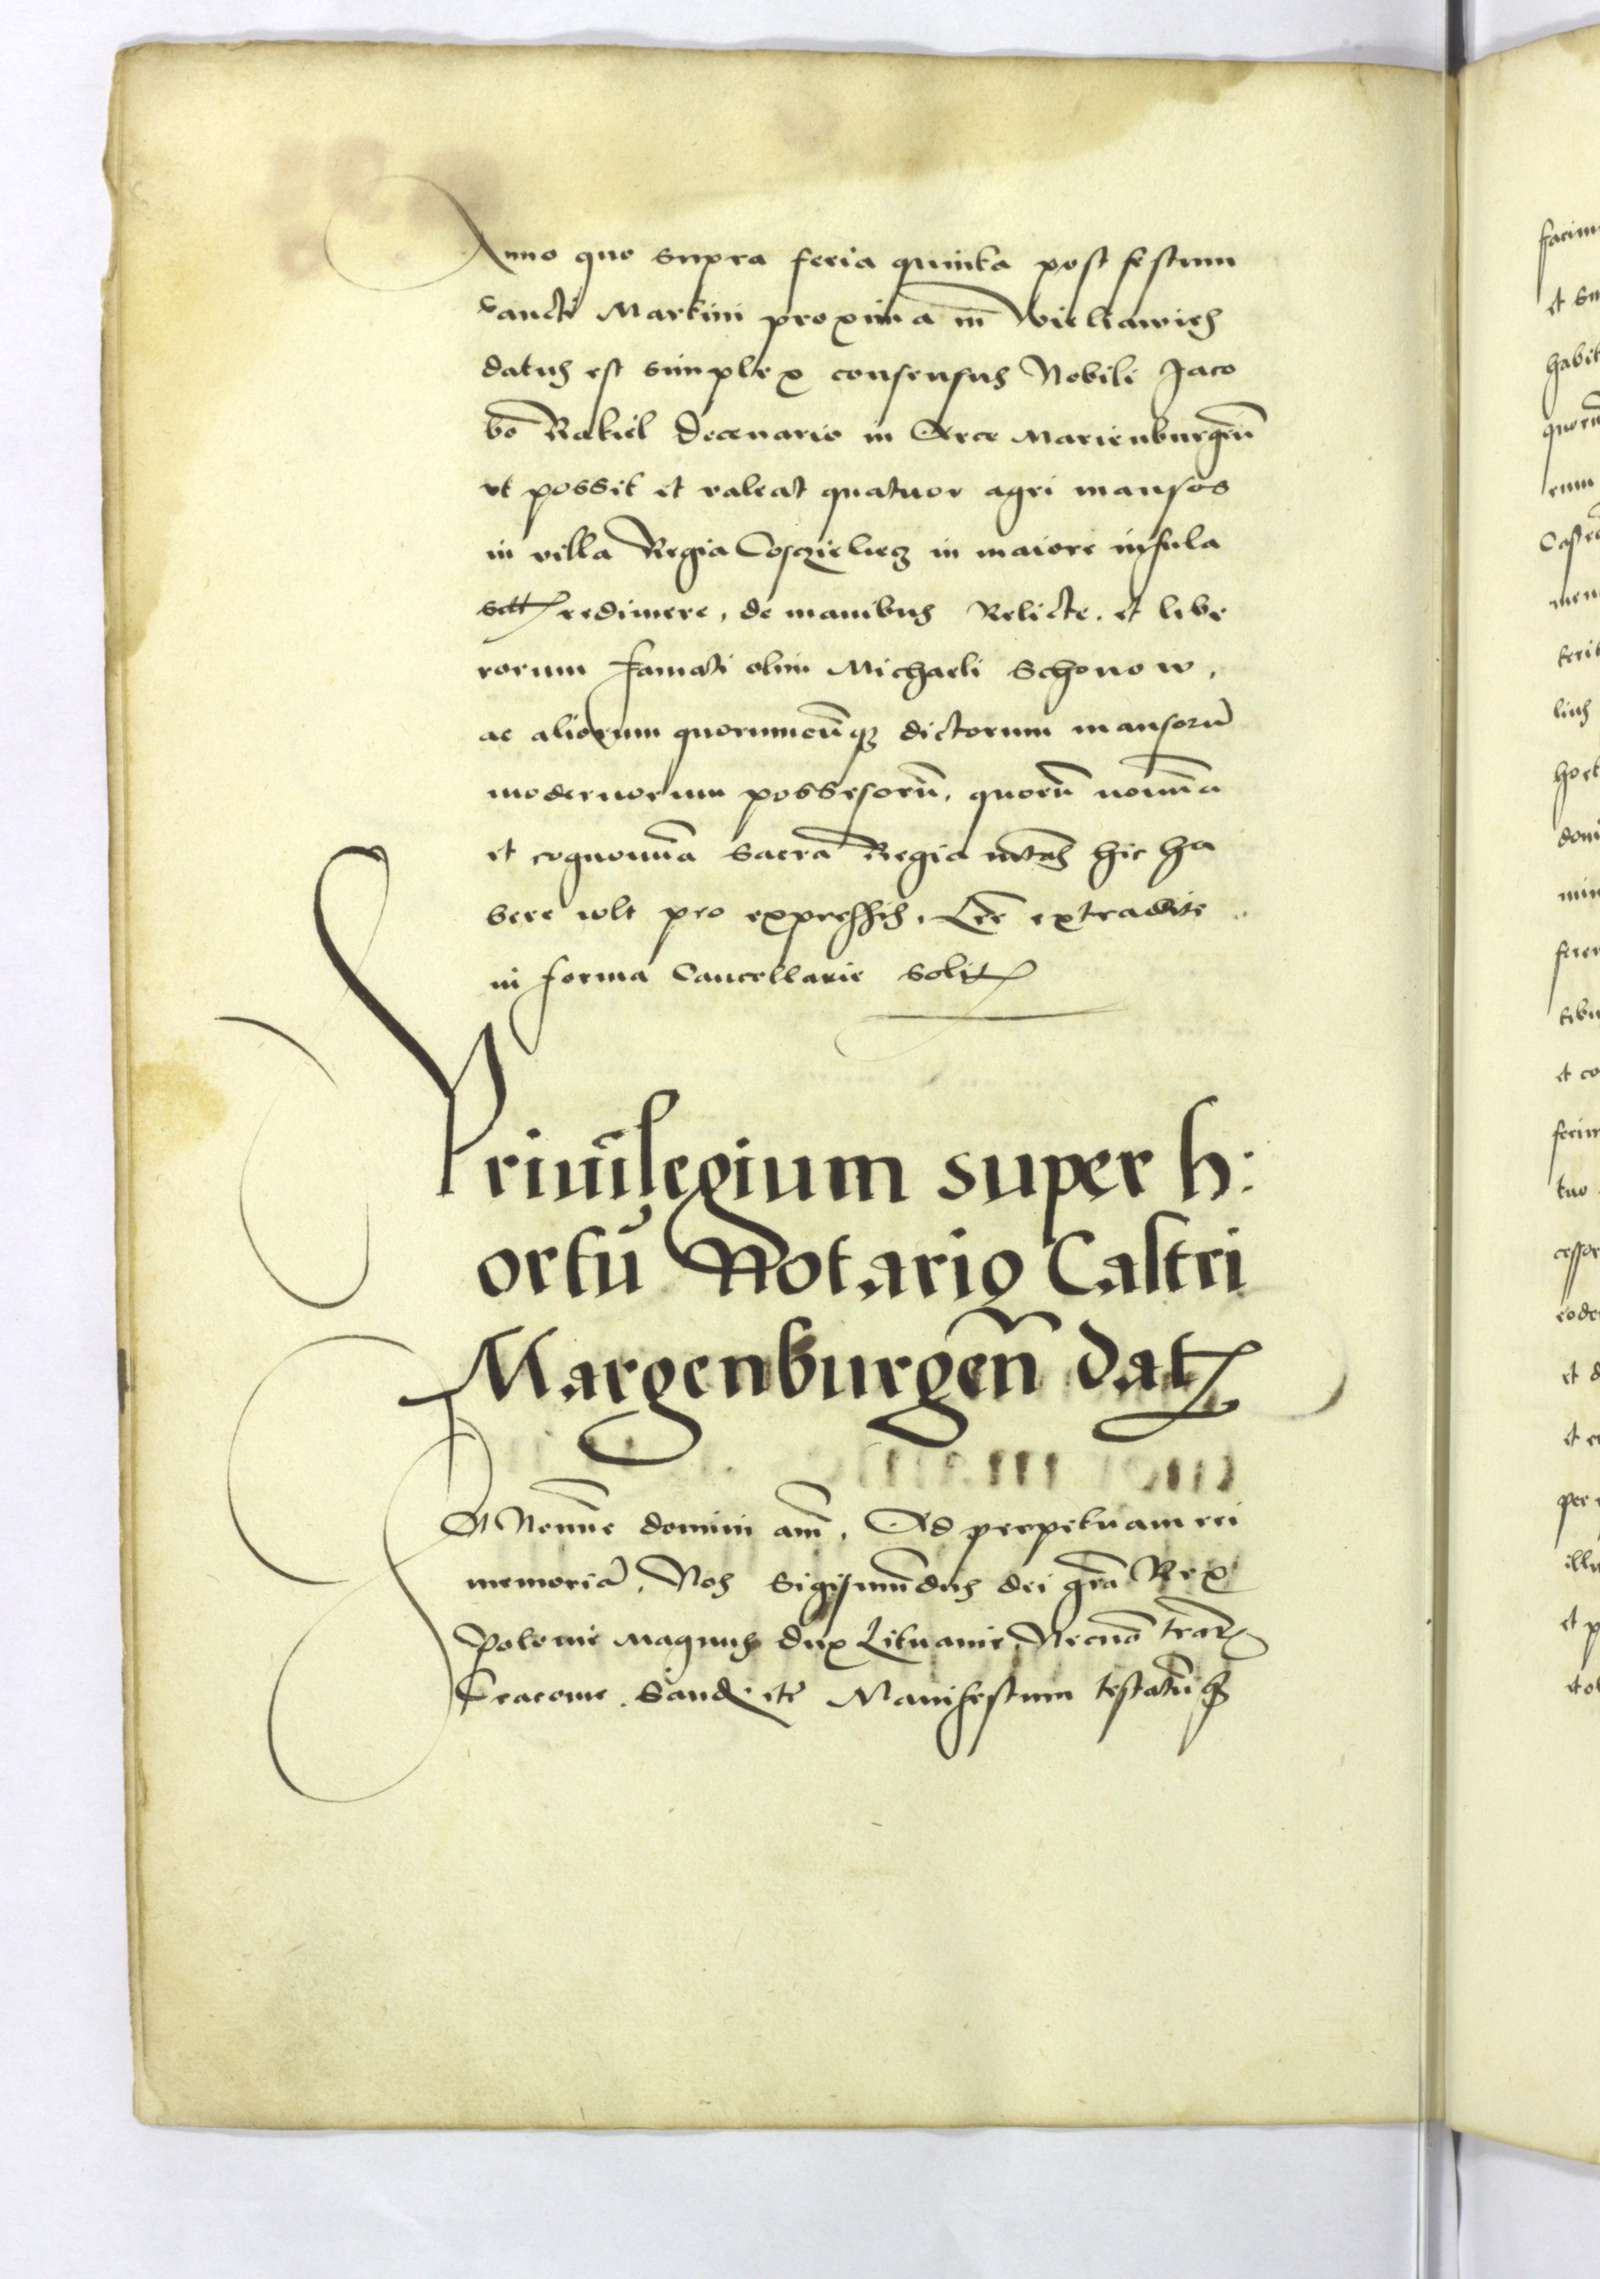 Anno quo supra feria quinta post festum
sancti Martini proxima in Wieliawies
datus est simplex consensus Nobili Jaco
bo Rakiel decenario in Arce Marienburgeñ
vt possit et valeat quatuor agri mansos
in villa Regia Coszieliecz in maiore insula
redimere, de manibus Relicte. et libe
rorum famati olim Michaeli Schonow,
ac aliorum quorumcunq; dictorum mansorū
modernorum possesorū, quorū noīna
et cognoīna sacra Regia mtas hic ha
bere vlt pro expressis. Lre extradite
in forma Cancellarie solit
Priuilegium super h:
ortū Notario Castri
Margenburgeñ dat
In Nomine domini amē, Ad perpetuam rei
memoriā, Nos Sigismundus dei grā Rex
Polonie Magnus dux Lituanie, Necnō terar
Cracovie. Sand. etc Manifestum testatūq;
facim
et
habit
quorū
eum
men
terit
lius
hort
dom
min
ferer
tibu
et co
ferim
tuo
cessor
eode
et d
et
per
illu
et p